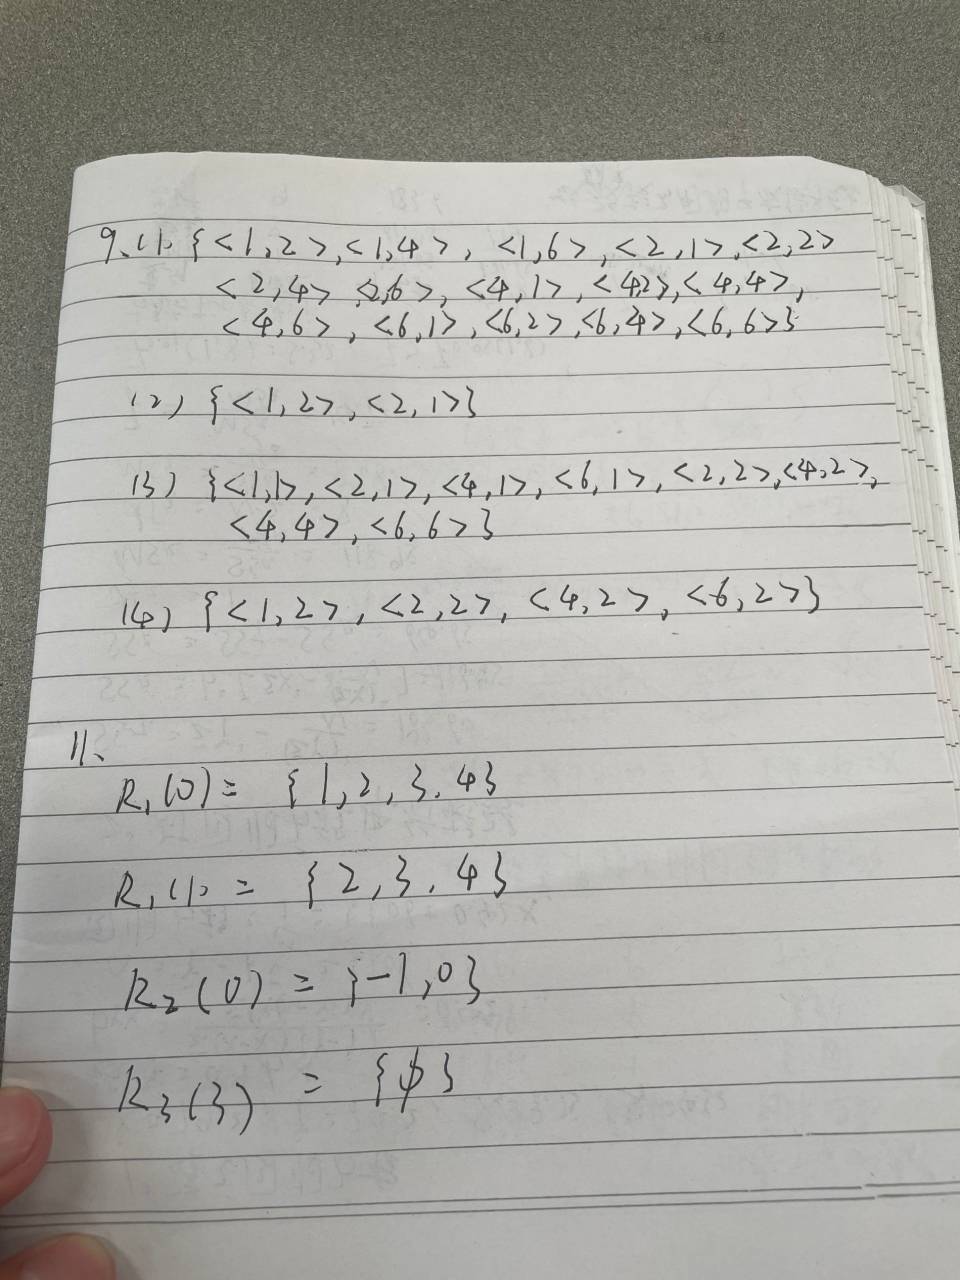 9、(1). {<1,2>,<1,4>, <1,6>, <2,1>,<2,2>
<2,4> <2,6>, <4,1>, <4,2>,<4,4>,
<4,6>, <6,1>,<6,2>,<6,4>,<6,6>}
(2) {<1,2>,<2,1>}
(3) {<1,1>,<2,1>,<4,1>,<6,1>,<2,2>,<4,2>,
<4,4>,<6,6>}
(4) {<1,2>, <2,2>, <4,2>, <6,2>}
11、
R₁(0)= {1,2,3.4}
R₁(1) = {2,3.4}
R₂(0) = {-1,0}
R₃(3) = {ϕ}